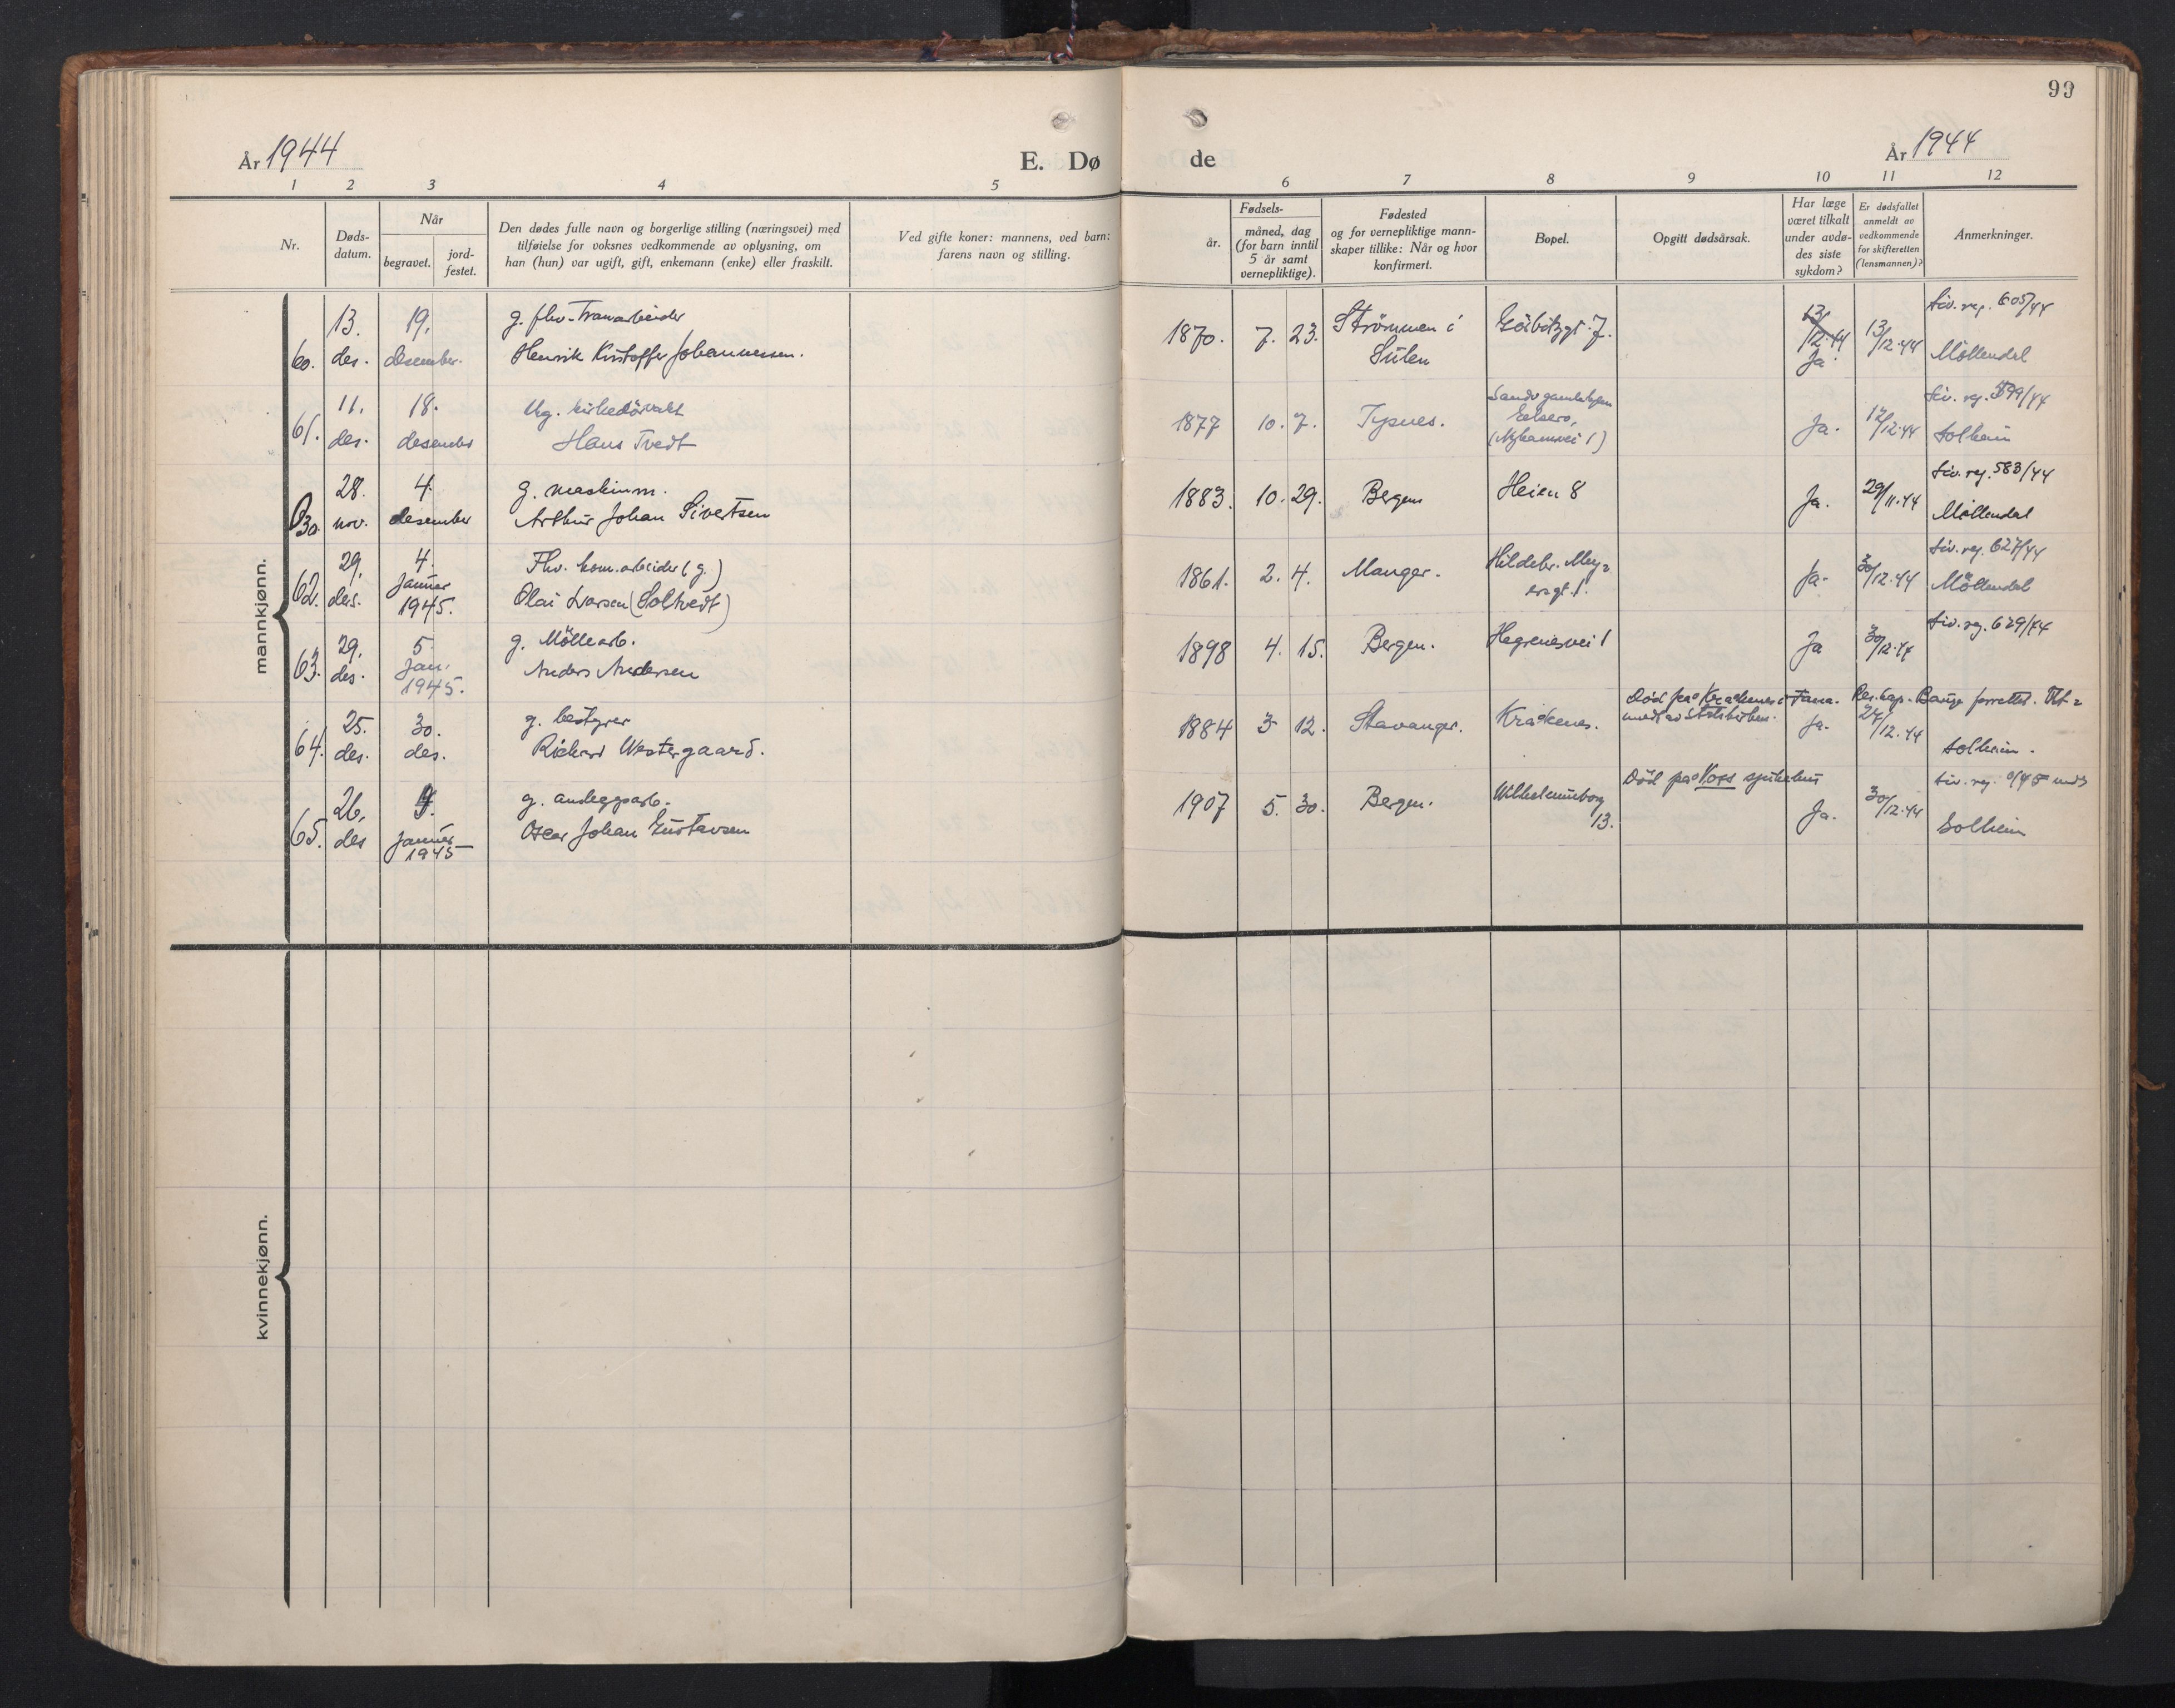 99
År 1944
E. Dø
de
År 1944
1 2 3 4 5 6 7 8 9 10 11 12
Nr.
Døds-
datum.
Når
begravet.
jord-
festet.
Den dødes fulle navn og borgerlige stilling (næringsvei) med
tilføielse for voksnes vedkommende av oplysning, om
han (hun) var ugift, gift, enkemann (enke) eller fraskilt.
Ved gifte koner: mannens, ved barn:
farens navn og stilling.
Fødsels-
år.
måned, dag
(for barn inntil
5 år samt
vernepliktige).
Fødested
og for vernepliktige mann-
skaper tillike: Når og hvor
konfirmert.
Bopel.
Opgitt dødsårsak.
Har læge
været tilkalt
under avdø-
des siste
sykdom?
Er dødsfallet
anmeldt av
vedkommende
for skifteretten
(lensmannen)?
Anmerkninger.
mannkjønn.
60. 13. des. 19. desember.
g. fhv. Tranarbeider
Henrik Kristoffer Johannessen.
1870. 7. 23. Strömmen i
Sulen
13/12.44
Ja.
13/12.44
Liv. reg. 605/44
Möllendal
61. 11. des. 18. desember
Ug. kirkedörvakt
Hans Tvedt
1877 10. 7.
Ja. 12/12.44
Liv. reg. 599/44
Solheim
28. nov. 4. desember
g. maskinm.
Arthur Johan Sivertsen
1883. 10. 29. Bergen
Heien 8
Ja. 29/11.44
Liv. reg. 583/44
Möllendal
62. 29. des. 4. Januar 1945.
Fhv. kom. arbeider (g.)
Olai Larsen (Soltvedt)
1861. 2. 4. Manger.
Hildebr. Mey=
ersgt. 1.
Ja. 30/12.44
Liv. reg. 627/44
Möllendal
63. 29. des. 5. Jan. 1945.
g. Möllearb.
Anders Andersen
1898 4. 15. Bergen.
Hegrenesvei 1
Ja 30/12.44
Liv. reg. 629/44
64. 25. des. 30. des.
g. bestyrer
Richard Westergaard.
1884 3 12. Stavanger.
Kråkenes.
Död på Kråkenes i Fana. Res. kap. Bauge forrettet. Ut=
meldt av Statskirken.
Ja. 27/12.44
Solheim.
65. 26. des Januar 1945
g. anleggsarb.
Oscar Johan Gustavsen
1907 5. 30. Bergen.
Wilhelminborg
13.
Död på Voss sykehus
Ja. 30/12.44
Liv. reg.
Solheim
kvinnekjønn.